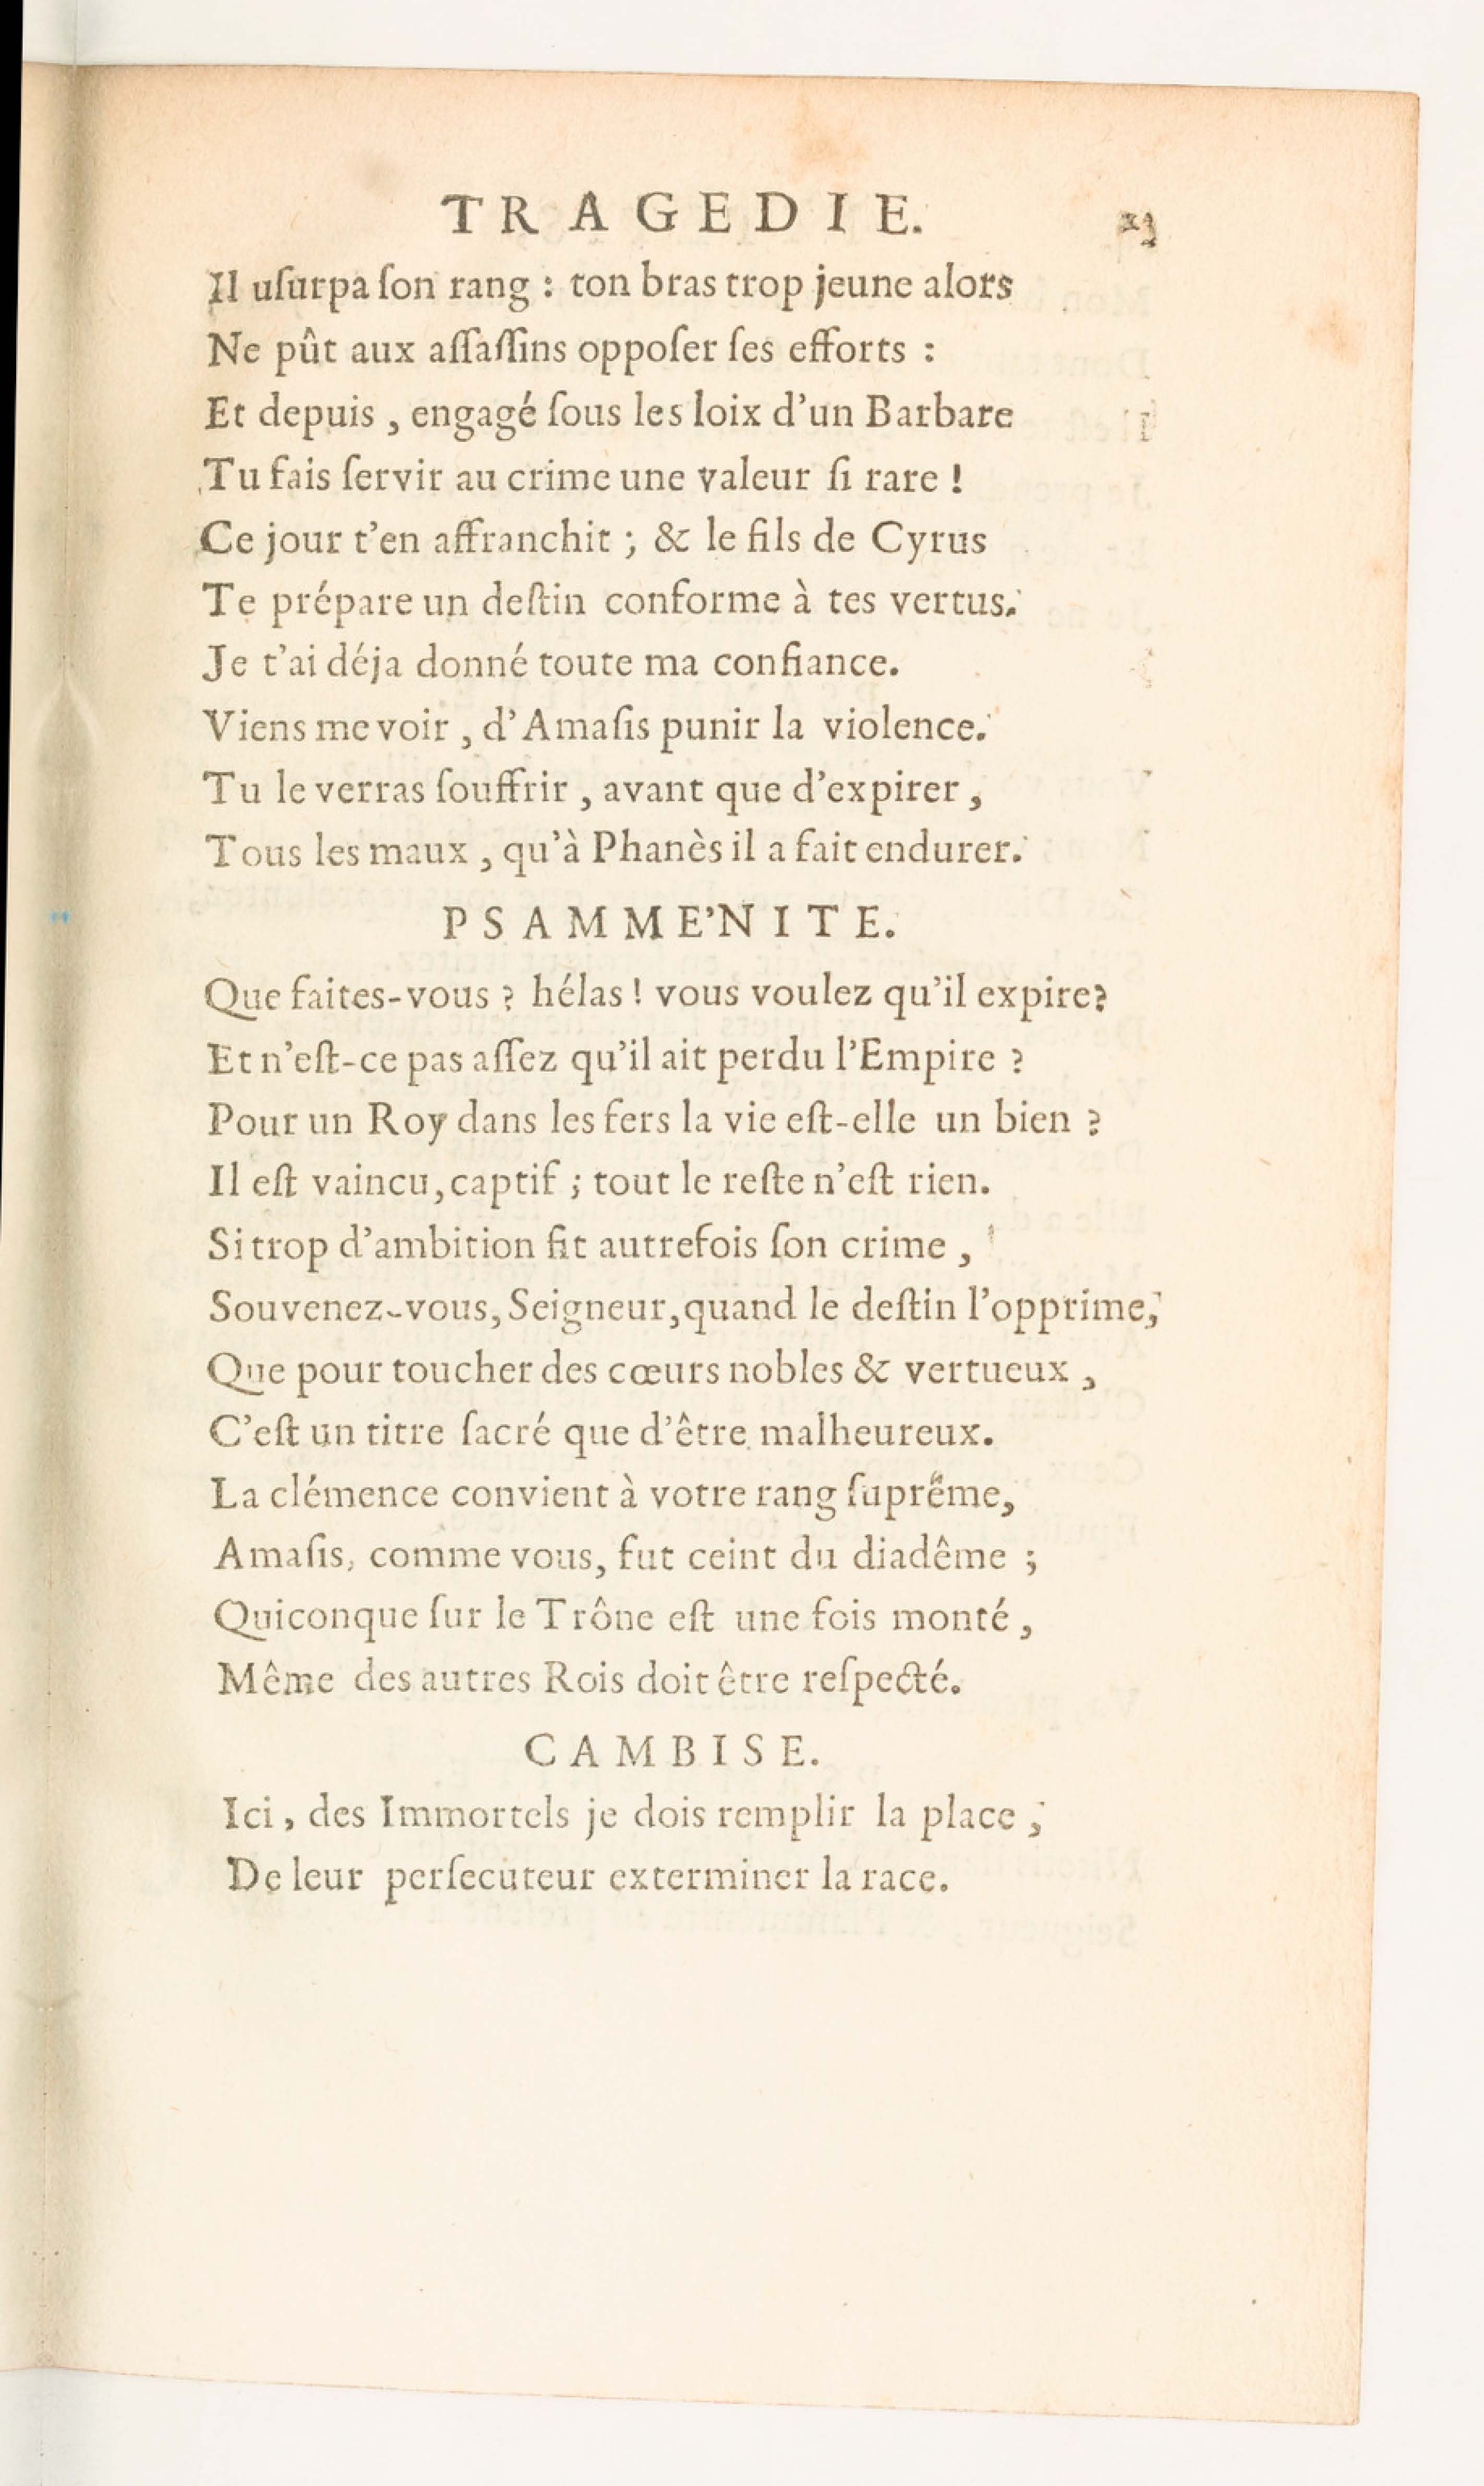 TRAGEDIE. 23
Il uſurpa ſon rang : ton bras trop jeune alors
Ne pût aux aſſaſſins oppoſer ſes efforts :
Et depuis , engagé ſous les loix d'un Barbare
Tu fais ſervir au crime une valeur ſi rare !
Ce jour t'en affranchit ; & le fils de Cyrus
Te prépare un deſtin conforme à tes vertus.
Je t'ai déja donné toute ma confiance.
Viens me voir , d'Amaſis punir la violence.
Tu le verras ſouffrir , avant que d'expirer ,
Tous les maux , qu'à Phanès il a fait endurer.
PSAMME'NITE.
Que faites-vous ? hélas ! vous voulez qu'il expire?
Et n'eſt-ce pas aſſez qu'il ait perdu l'Empire ?
Pour un Roy dans les fers la vie eſt-elle un bien ?
Il eſt vaincu, captif ; tout le reſte n'eſt rien.
Si trop d'ambition fit autrefois ſon crime ,
Souvenez-vous, Seigneur, quand le deſtin l'opprime,
Que pour toucher des cœurs nobles & vertueux ,
C'eſt un titre ſacré que d'être malheureux.
La clémence convient à votre rang ſuprême,
Amaſis, comme vous, fut ceint du diadême ;
Quiconque ſur le Trône eſt une fois monté ,
Même des autres Rois doit être reſpecté.
CAMBISE.
Ici , des Immortels je dois remplir la place ,
De leur perſecuteur exterminer la race.